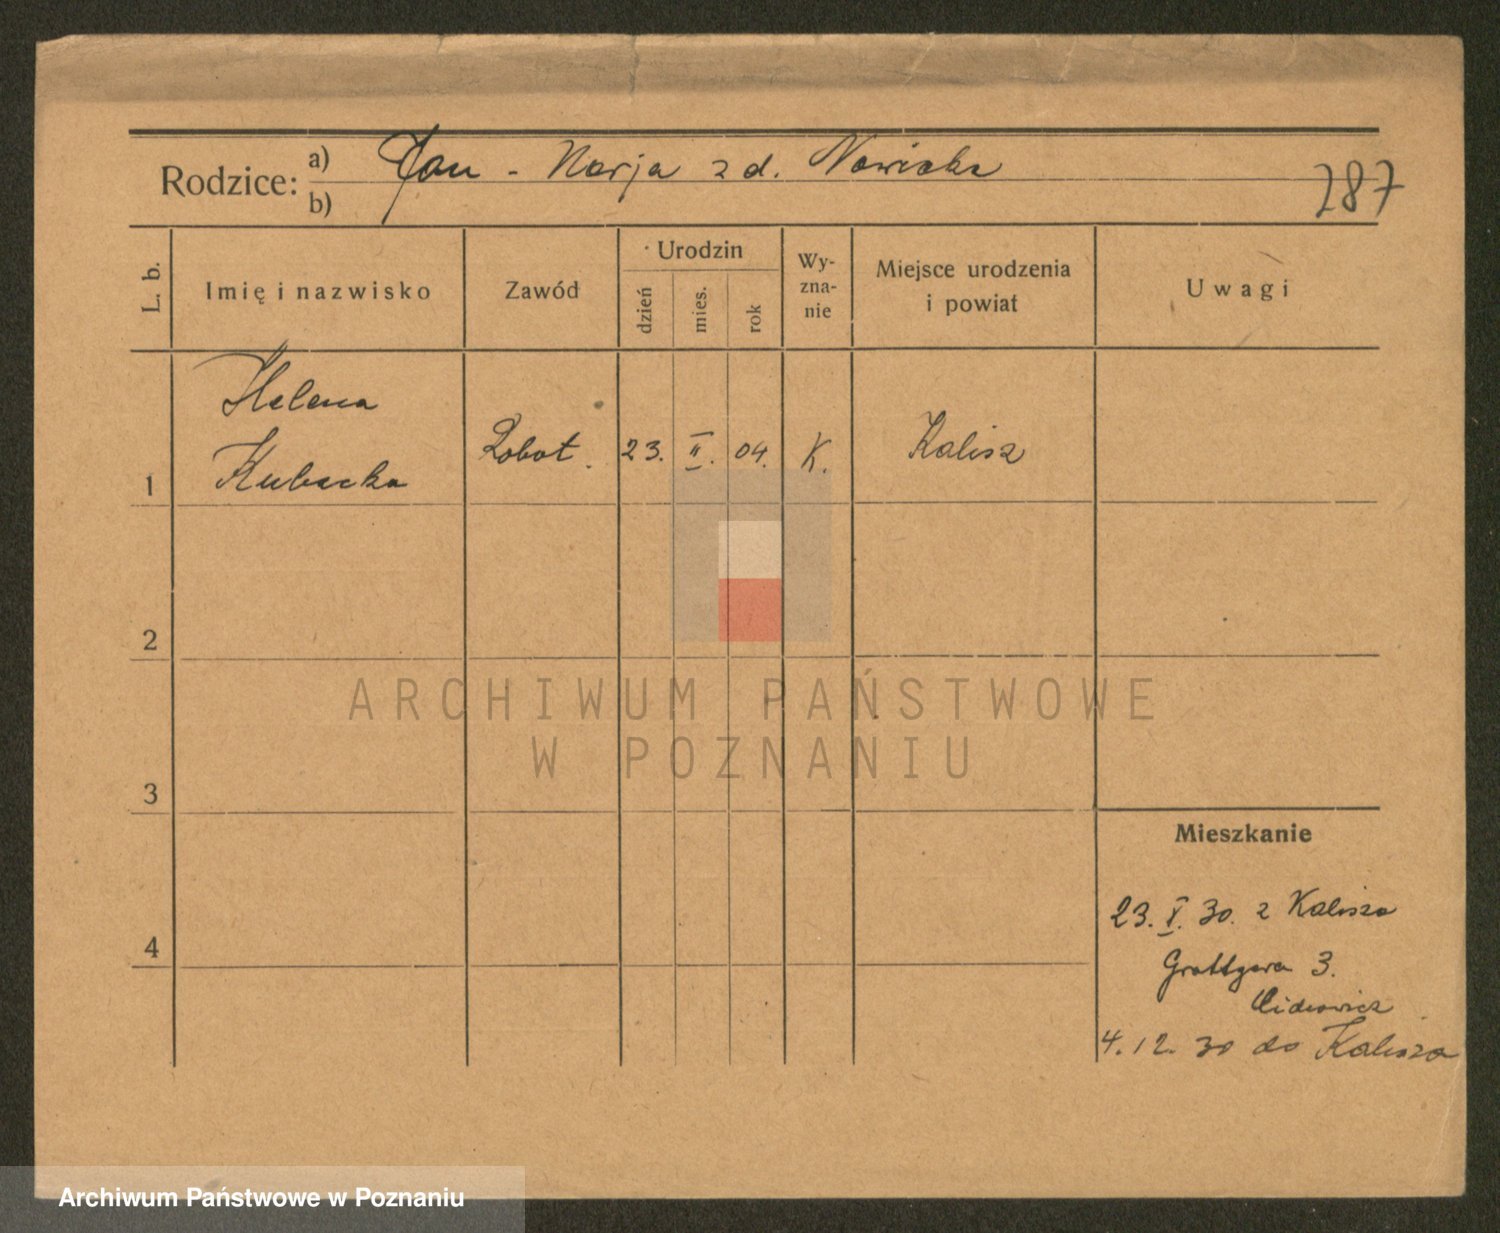 Rodzice: a) Jan - Marja z d. Nowicka
b)
287
L. b.
Imię i nazwisko
Zawód
Urodzin
dzień
mies.
rok
Wy-
zna-
nie
Miejsce urodzenia
i powiat
Uwagi
Helena
Kubacka
1
Robot.
23. II. 04.
K.
Kalisz
2
3
4
ARCHIWUM PAŃSTWOWE
W POZNANIU
Mieszkanie
23. V. 30. z Kalisza
Grottgera 3.
4.12. 30 do Kalisza
Archiwum Państwowe w Poznaniu